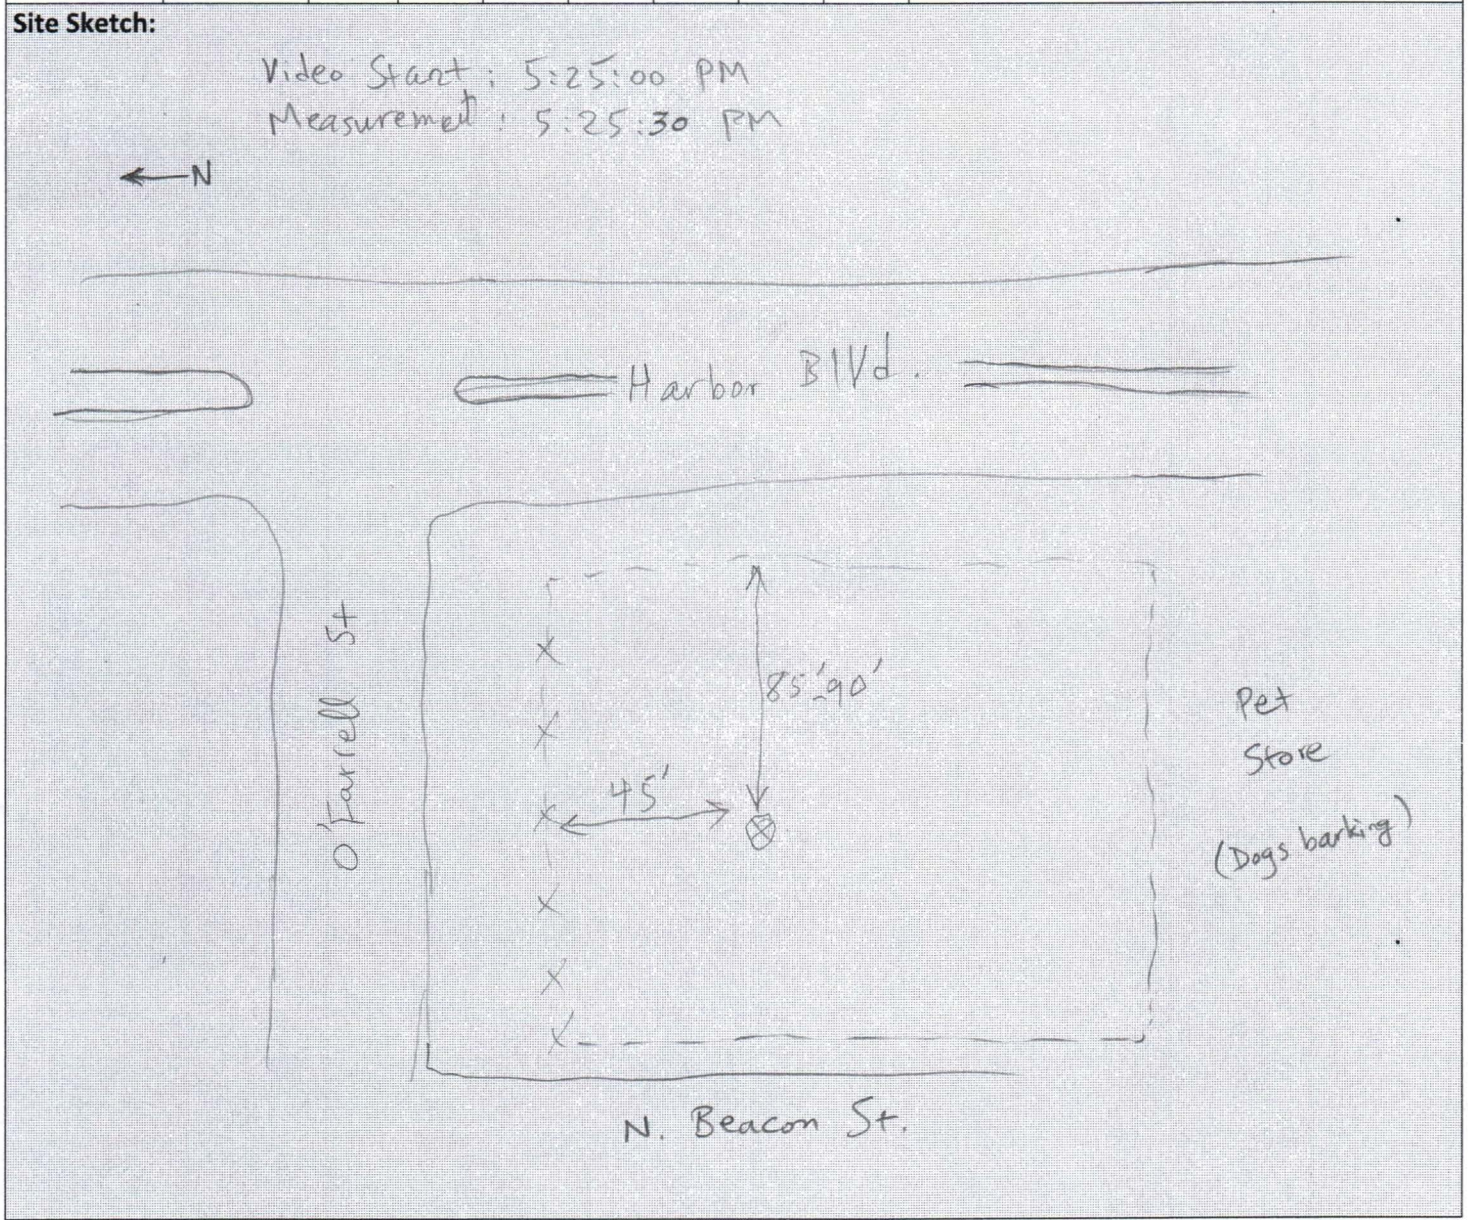 Site Sketch:
Video Start: 5:25:00 PM
Measurement: 5:25:30 PM
←N
Harbor Blvd.
O'Farrell St
85'-90'
45'
Pet
Store
(Dogs barking)
N. Beacon St.